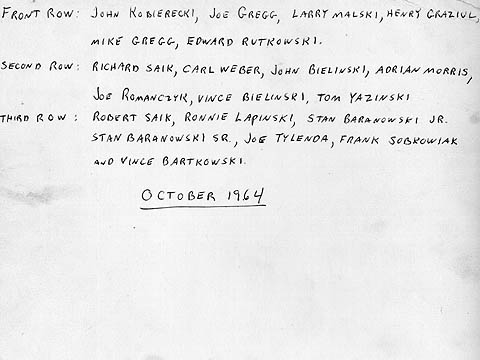 FRONT ROW: JOHN KOBIERECKI, JOE GREGG, LARRY MALSKI, HENRY GRAZIUL,
MIKE GREGG, EDWARD RUTKOWSKI.
SECOND ROW: RICHARD SAIK, CARL WEBER, JOHN BIELINSKI, ADRIAN MORRIS,
JOE ROMANCZYK, VINCE BIELINSKI, TOM YAZINSKI
THIRD ROW: ROBERT SAIK, RONNIE LAPINSKI, STAN BARANOWSKI JR.
STAN BARANOWSKI SR., JOE TYLENDA, FRANK SOBKOWIAK
AND VINCE BARTKOWSKI.
OCTOBER 1964